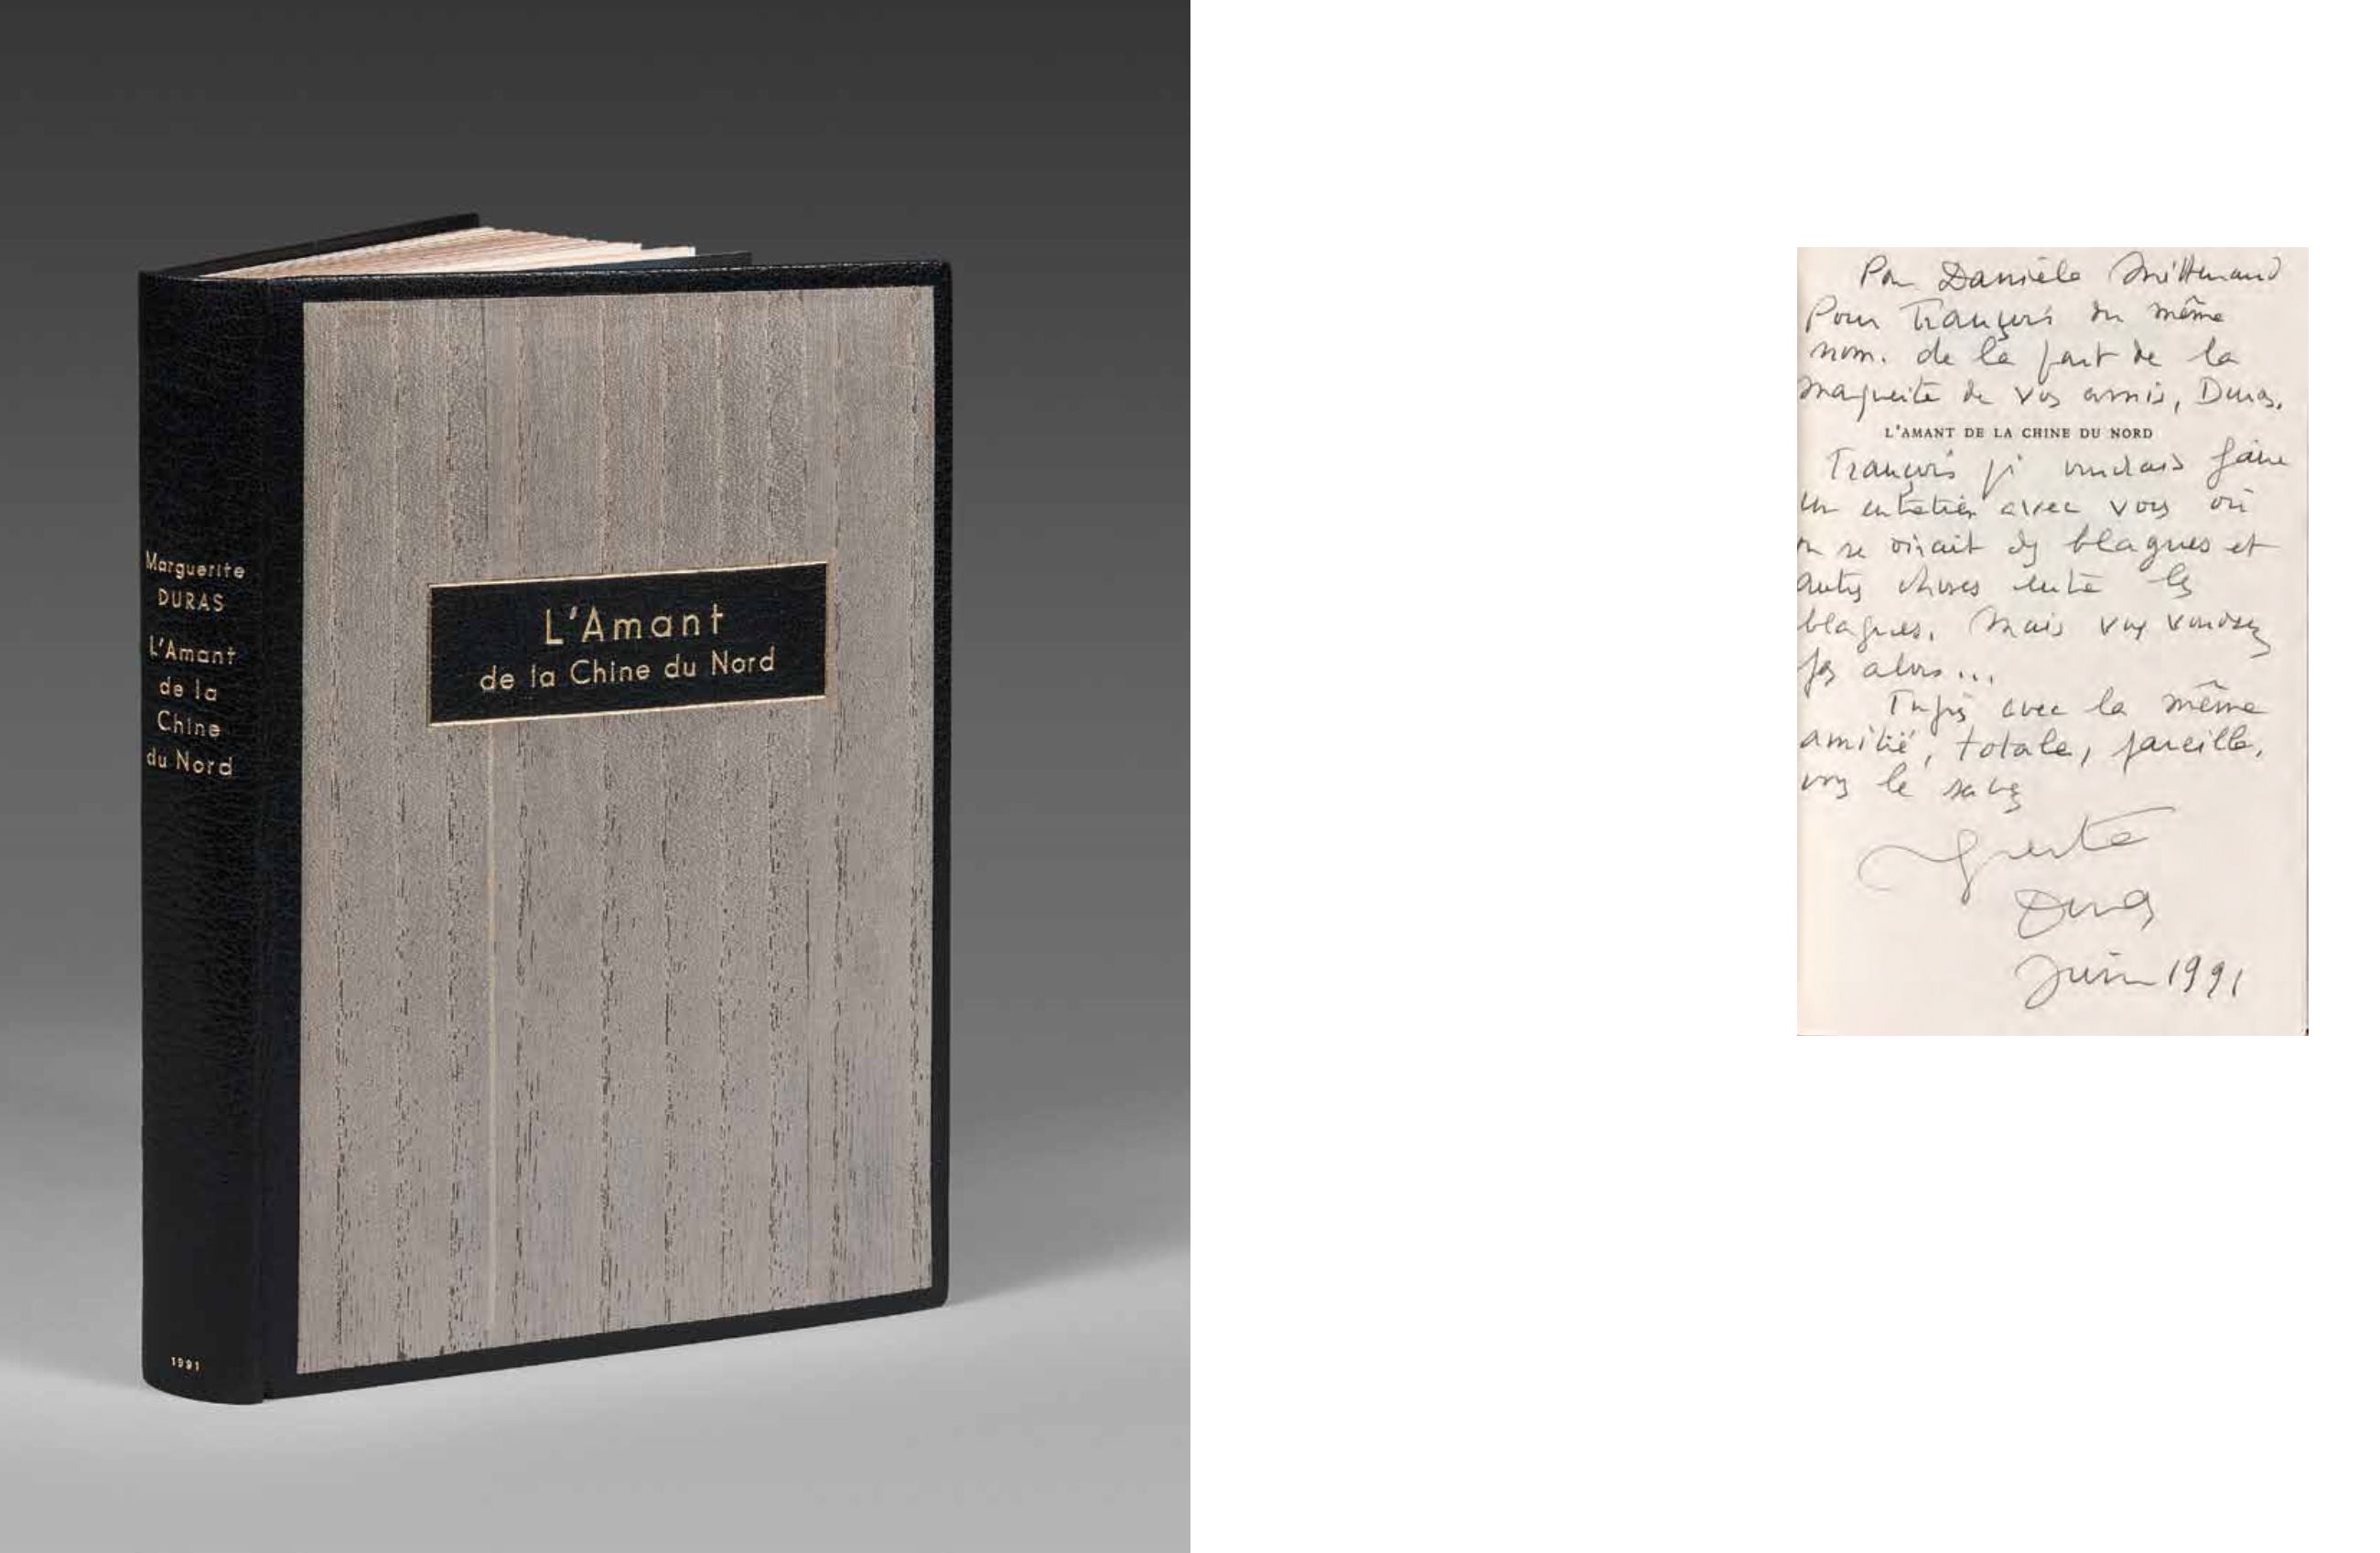 Marguerite
DURAS
L'Amant
de la
Chine
du Nord
1991
L'Amant
de la Chine du Nord
Pour Danièle Mitterrand
Pour François du même
nom. de la part de la
Marguerite de vos amis, Duras.
L'AMANT DE LA CHINE DU NORD
François je voudrais faire
un entretien avec vous où
on se dirait des blagues et
autres choses entre les
blagues. Mais vous voudrez
pas alors...
avec la même
amitié, totale, pareille,
vous le savez
Marguerite
Duras
Juin 1991